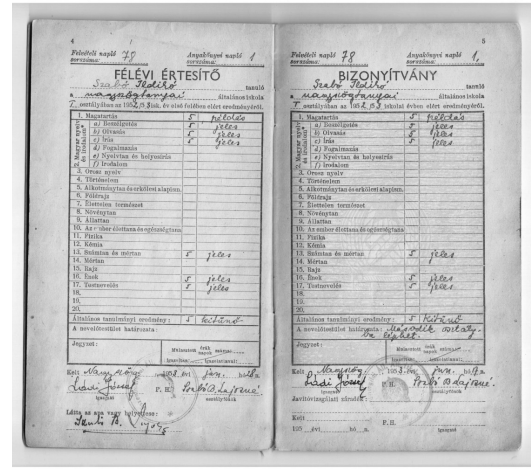 4
Felvételi napló sorszáma: 78
Anyakönyvi napló sorszáma: 1
FÉLÉVI ÉRTESÍTŐ
Szabó Ildikó tanuló
a nagyszögtanyai általános iskola
I. osztályában az 1952/53. isk. év első felében elért eredményéről.
1. Magatartás 5 példás
2. Magyar nyelv és irodalom
a) Beszélgetés 5 jeles
b) Olvasás 5 jeles
c) Írás 5 jeles
d) Fogalmazás
e) Nyelvtan és helyesírás
f) Irodalom
3. Orosz nyelv
4. Történelem
5. Alkotmánytan és erkölcsi alapism.
6. Földrajz
7. Élettelen természet
8. Növénytan
9. Állattan
10. Az ember élettana és egészségtana
11. Fizika
12. Kémia
13. Számtan és mértan 5 jeles
14. Mértan
15. Rajz
16. Ének 5 jeles
17. Testnevelés 5 jeles
18.
19.
20.
Általános tanulmányi eredmény: 5 kitűnő
A nevelőtestület határozata:
Jegyzet:
Mulasztott órák napok száma:
igazoltan: igazolatlanul:
Kelt Nagyszög 1953. évi jan. hó
Ládi József P. H. Szabó B. Lajosné
igazgató osztályfőnök
Látta az apa vagy helyettese:
Szabó B. Lajos
5
Felvételi napló sorszáma: 78
Anyakönyvi napló sorszáma: 1.
BIZONYÍTVÁNY
Szabó Ildikó tanuló
a nagyszögtanyai általános iskola
I. osztályában az 1952/53. iskolai évben elért eredményéről.
1. Magatartás 5 példás
2. Magyar nyelv és irodalom
a) Beszélgetés 5 jeles
b) Olvasás 5 jeles
c) Írás 5 jeles
d) Fogalmazás
e) Nyelvtan és helyesírás
f) Irodalom
3. Orosz nyelv
4. Történelem
5. Alkotmánytan és erkölcsi alapism.
6. Földrajz
7. Élettelen természet
8. Növénytan
9. Állattan
10. Az ember élettana és egészségtana
11. Fizika
12. Kémia
13. Számtan és mértan 5 jeles
14. Mértan
15. Rajz
16. Ének 5 jeles
17. Testnevelés 5 jeles
18.
19.
20.
Általános tanulmányi eredmény: 5 kitűnő
A nevelőtestület határozata: Második osztály-
ba léphet.
Jegyzet:
Mulasztott órák napok száma:
igazoltan: igazolatlanul:
Kelt Nagyszög 1953. évi jun. hó
Ládi József P. H. Szabó B. Lajosné
igazgató osztályfőnök
Javítóvizsgálati záradék:
Kelt
195 évi hó n. P. H. igazgató